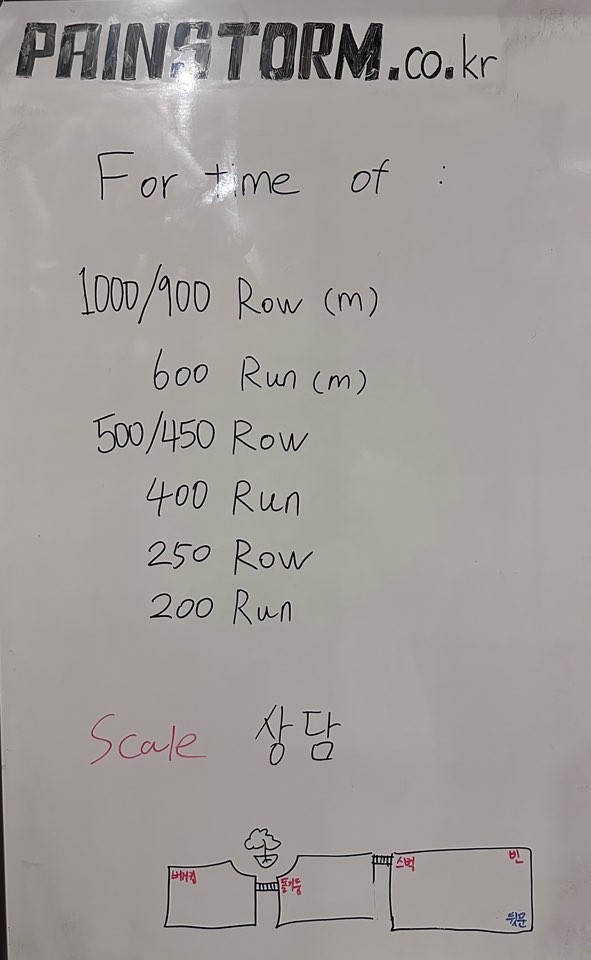 PAINSTORM.co.kr
For time of :
1000/900 Row (m)
600 Run (m)
500/450 Row
400 Run
250 Row
200 Run
Scale 상담
버거킹
돌기둥
스벅
빈
뒷문